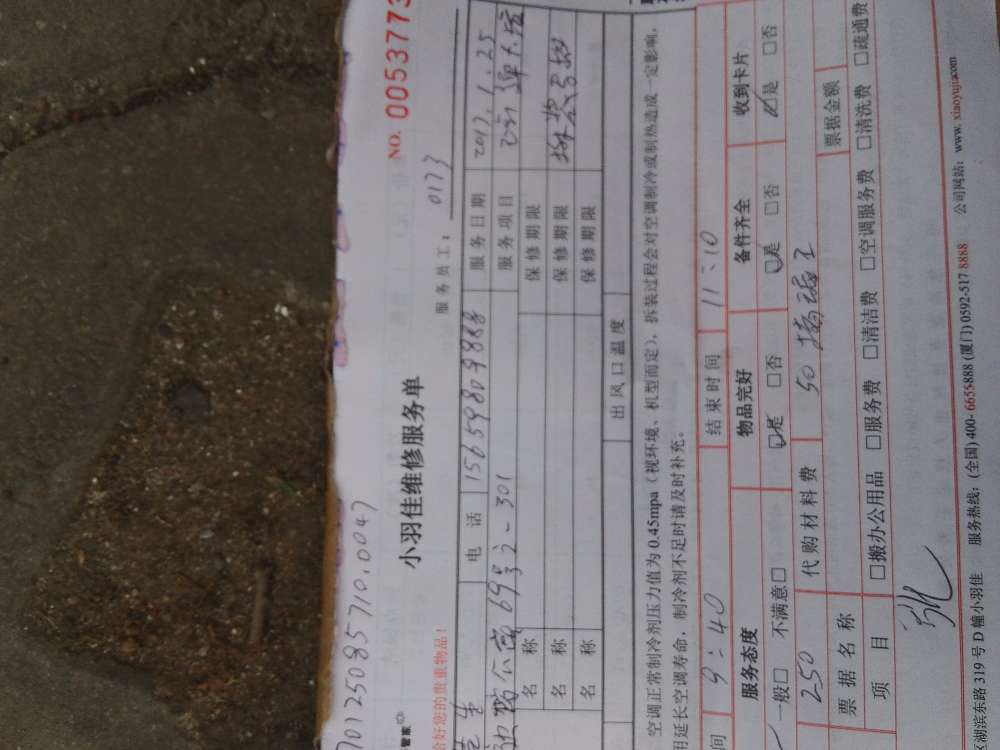 7012508571 0.0047
NO. 0053773
管家
小羽佳维修服务单
服务员工: 0173
拾好您的贵重物品!
电话 15659809888 服务日期 2017.1.25
693-301 服务项目
名称 保修期限
名称 保修期限
名称 保修期限
出风口温度
空调正常制冷剂压力值为0.45mpa(视环境、机型而定),拆装过程会对空调制冷或制热造成一定影响,
用延长空调寿命,制冷剂不足时请及时补充。
间 9:40 结束时间 11:10
服务态度 物品完好 备件齐全 收到卡片
一般□ 不满意□ □是 □否 □是 □否 □是 □否
250 代购材料费 50
票据名称 票据金额
项目 □搬办公用品 □服务费 □清洁费 □空调服务费 □清洗费 □疏通费
区湖滨东路319号D幢小羽佳 服务热线:(全国)400-6655-888(厦门)0592-517 8888 公司网站:www.xiaoyujia.com